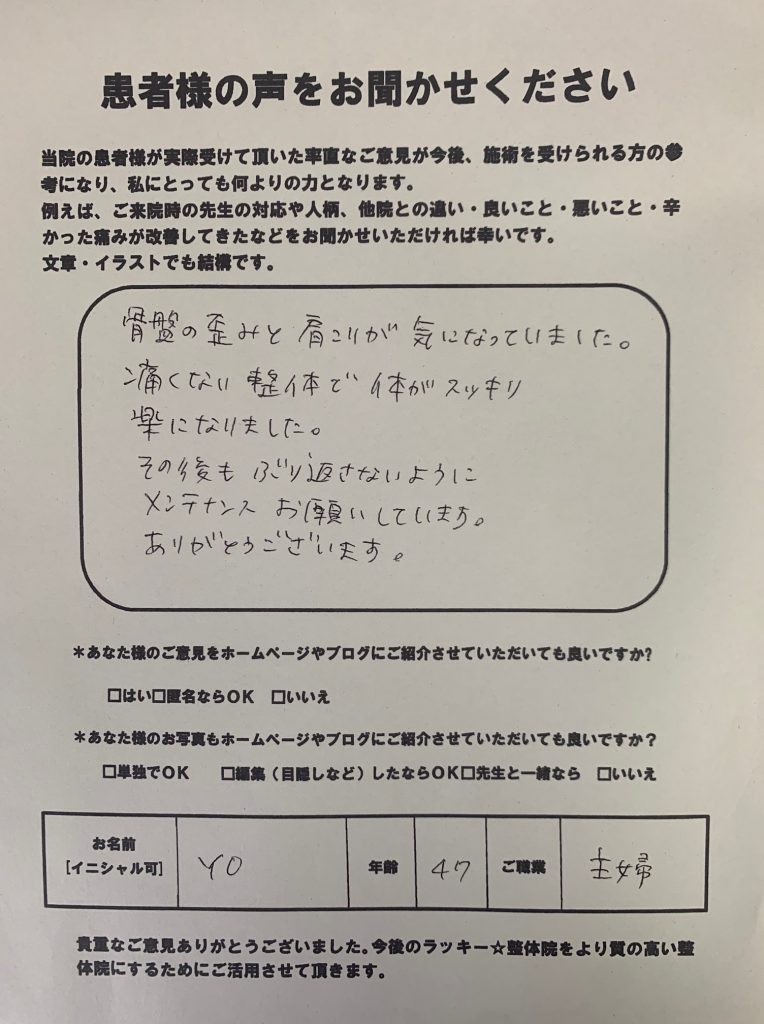 患者様の声をお聞かせください
当院の患者様が実際受けて頂いた率直なご意見が今後、施術を受けられる方の参
考になり、私にとっても何よりの力となります。
例えば、ご来院時の先生の対応や人柄、他院との違い・良いこと・悪いこと・辛
かった痛みが改善してきたなどをお聞かせいただければ幸いです。
文章・イラストでも結構です。
骨盤の歪みと肩こりが 気になっていました。
痛くない 整体で 体がスッキリ
楽になりました。
その後も ぶり返さないように
メンテナンス お願いしています。
ありがとうございます。
*あなた様のご意見をホームページやブログにご紹介させていただいても良いですか?
□はい□匿名ならOK □いいえ
*あなた様のお写真もホームページやブログにご紹介させていただいても良いですか?
□単独でOK □編集(目隠しなど)したならOK□先生と一緒なら □いいえ
お名前
[イニシャル可] YO 年齢 47 ご職業 主婦
貴重なご意見ありがとうございました。今後のラッキー☆整体院をより質の高い整
体院にするためにご活用させて頂きます。